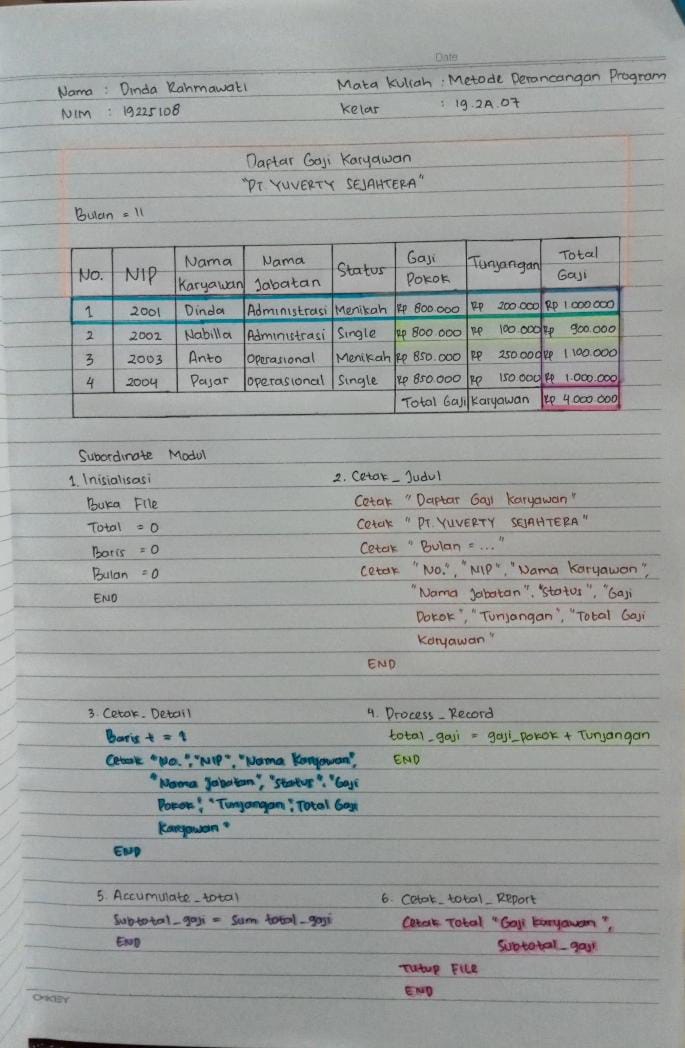 Date
Nama : Dinda Rahmawati
Mata Kuliah : Metode Perancangan Program
NIM : 19225108
Kelas : 19.2A.07
Daftar Gaji Karyawan
"PT. YUVERTY SEJAHTERA"
Bulan = 11
No. NIP Nama Karyawan Nama Jabatan Status Gaji Pokok Tunjangan Total Gaji
1 2001 Dinda Administrasi Menikah Rp 800.000 Rp 200.000 Rp 1.000.000
2 2002 Nabilla Administrasi Single Rp 800.000 Rp 100.000 Rp 900.000
3 2003 Anto Operasional Menikah Rp 850.000 Rp 250.000 Rp 1.100.000
4 2004 Fajar Operasional Single Rp 850.000 Rp 150.000 Rp 1.000.000
Total Gaji Karyawan Rp 4.000.000
Subordinate Modul
1. Inisialisasi
Buka File
Total = 0
Baris = 0
Bulan = 0
END
2. Cetak_Judul
Cetak "Daftar Gaji Karyawan"
Cetak "PT. YUVERTY SEJAHTERA"
Cetak "Bulan = ..."
Cetak "No.", "NIP", "Nama Karyawan",
"Nama Jabatan", "Status", "Gaji
Pokok", "Tunjangan", "Total Gaji
Karyawan"
END
3. Cetak_Detail
Baris + = 1
Cetak "No.", "NIP", "Nama Karyawan",
"Nama Jabatan", "Status", "Gaji
Pokok", "Tunjangan", Total Gaji
Karyawan"
END
4. Process_Record
total_gaji = gaji_pokok + Tunjangan
END
5. Accumulate_total
Subtotal_gaji = Sum total_gaji
END
6. Cetak_total_Report
Cetak Total "Gaji Karyawan",
Subtotal_gaji
Tutup FILE
END